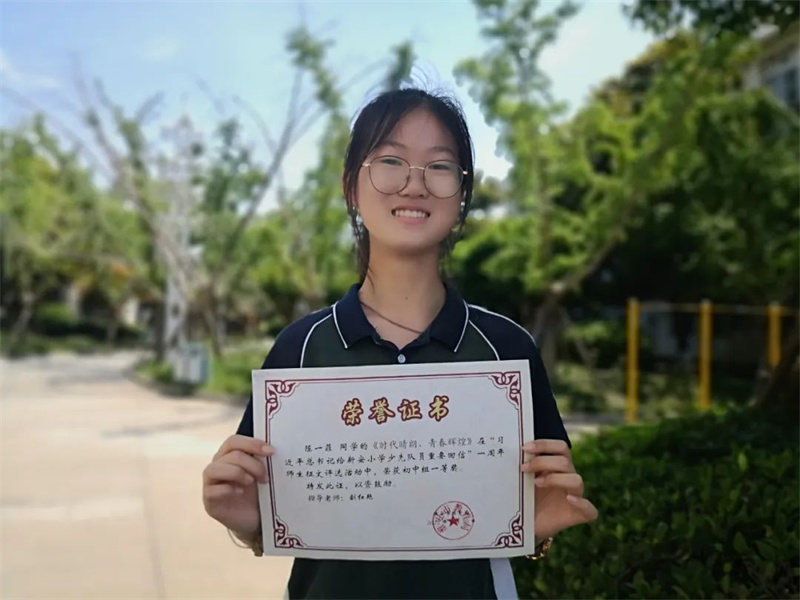 荣誉证书
陈一菲 同学的《时代晴朗,青春辉煌》在“习
近平总书记给新安小学少先队员重要回信”一周年
师生征文评选活动中,荣获初中组一等奖。
特发此证,以资鼓励。
指导老师:彭红艳